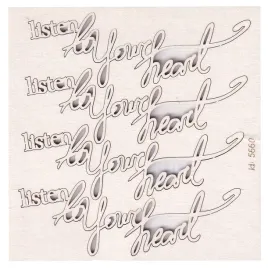 listen to Your heart
listen to Your heart
listen to Your heart
listen to Your heart
id: 5660